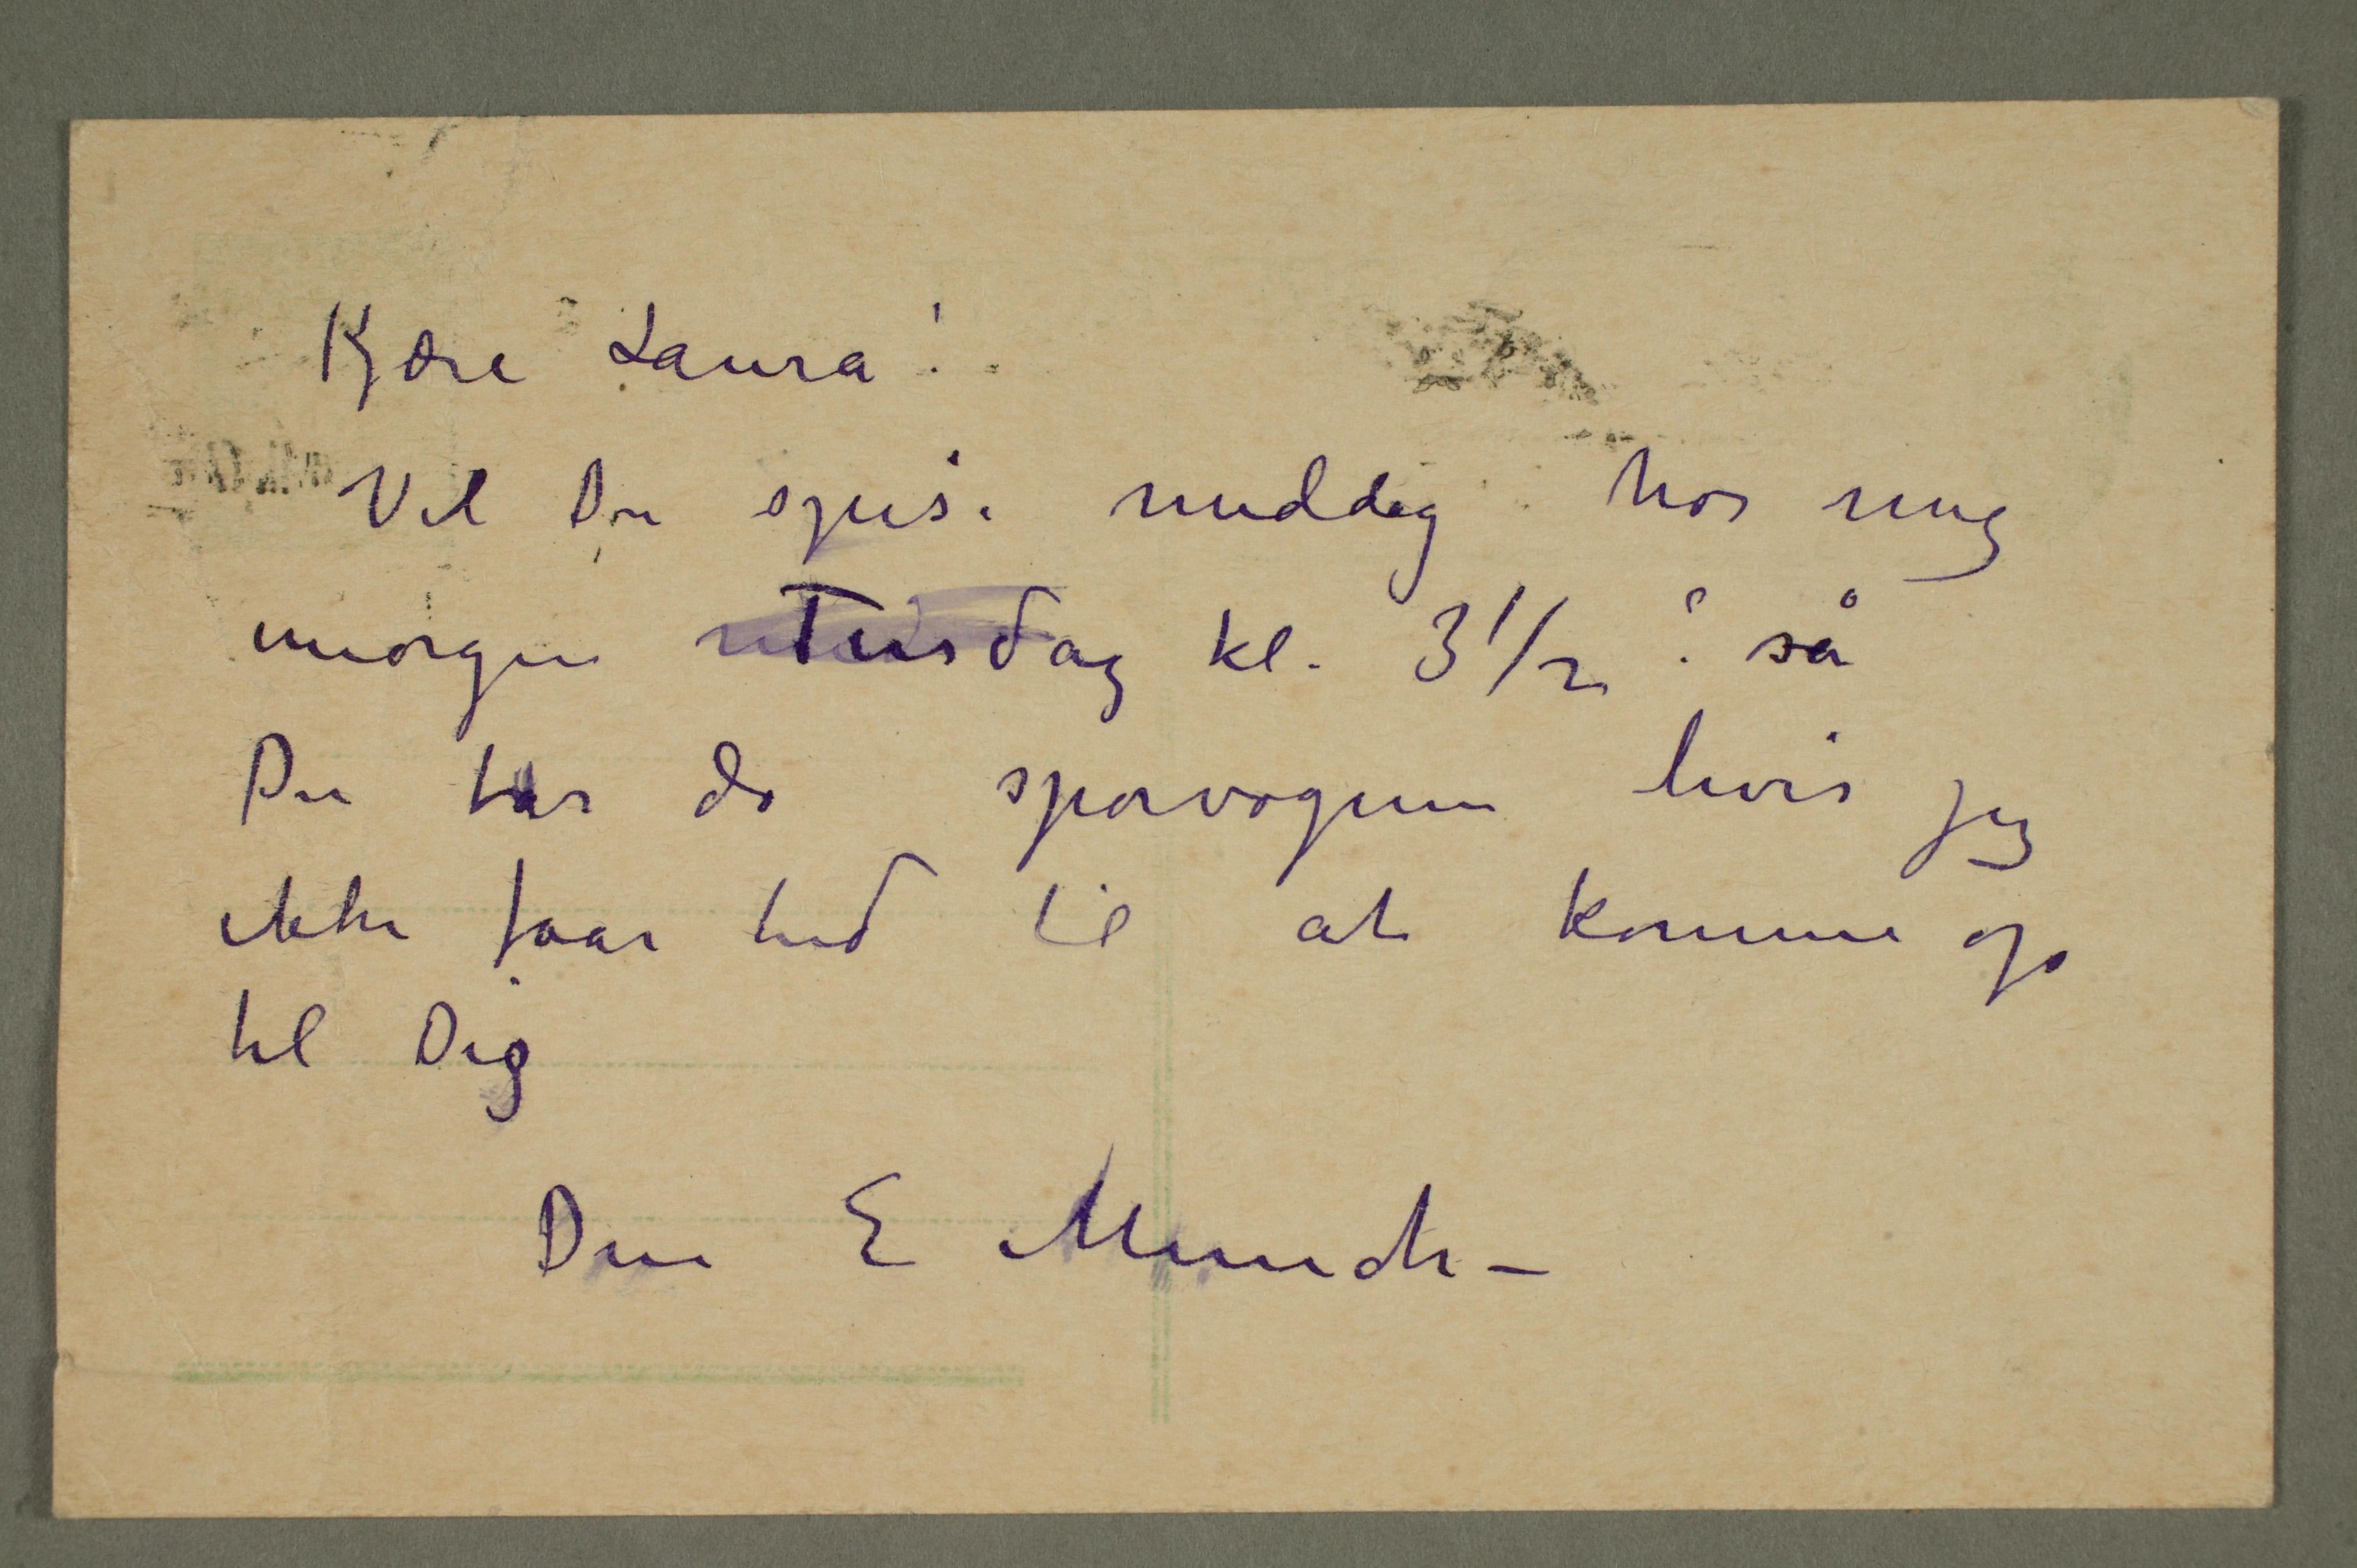 Kjære Laura!
Vil Du spise middag hos mig
imorgen Tirsdag kl. 3 1/2? så
Du tar da sporvognen hvis jeg
ikke faar tid til at komme op
til Dig
Din E Munch –